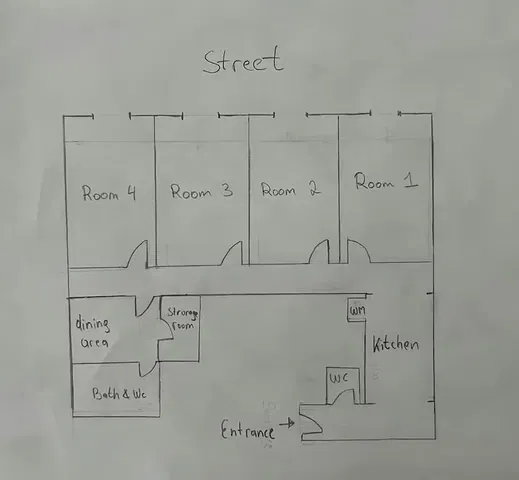 Street
Room 4
Room 3
Room 2
Room 1
dining
area
Strorage
room
WM
Kitchen
Bath & Wc
WC
Entrance